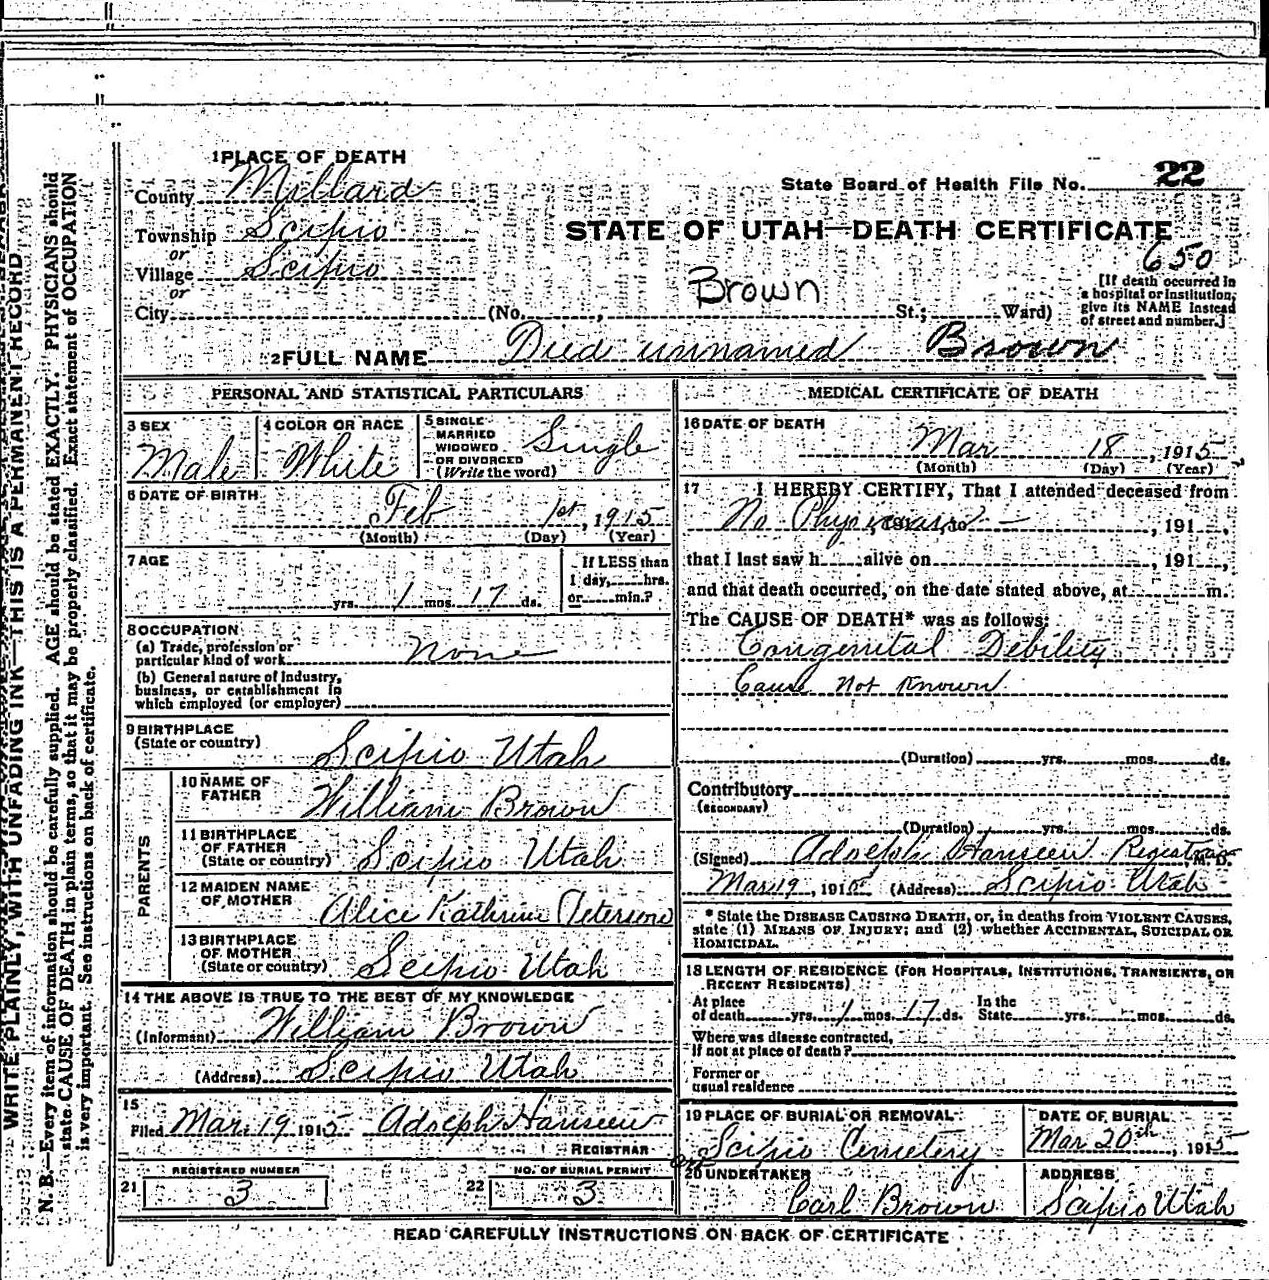 1 PLACE OF DEATH
County Millard
State Board of Health File No. 22
Township Scipio
or
STATE OF UTAH—DEATH CERTIFICATE
650
Village Scipio
or
Brown
[If death occurred in
a hospital or institution,
give its NAME instead
of street and number.]
City (No. , St.; Ward)
2 FULL NAME Died unnamed Brown
PERSONAL AND STATISTICAL PARTICULARS
3 SEX
Male
4 COLOR OR RACE
White
5 SINGLE
MARRIED
WIDOWED
OR DIVORCED
(Write the word)
Single
6 DATE OF BIRTH
Feb 1st, 1915
(Month) (Day) (Year)
7 AGE
yrs. 1 mos. 17 ds.
If LESS than
1 day, hrs.
or min.?
8 OCCUPATION
(a) Trade, profession or
particular kind of work None
(b) General nature of Industry,
business, or establishment in
which employed (or employer)
9 BIRTHPLACE
(State or country) Scipio Utah
PARENTS
10 NAME OF
FATHER William Brown
11 BIRTHPLACE
OF FATHER
(State or country) Scipio Utah
12 MAIDEN NAME
OF MOTHER Alice Kathrine Peterson
13 BIRTHPLACE
OF MOTHER
(State or country) Scipio Utah
14 THE ABOVE IS TRUE TO THE BEST OF MY KNOWLEDGE
(Informant) William Brown
(Address) Scipio Utah
15
Filed Mar. 19 1915 Adolph Hanseen
REGISTRAR
REGISTERED NUMBER
21 3
NO. OF BURIAL PERMIT
22 3
MEDICAL CERTIFICATE OF DEATH
16 DATE OF DEATH
Mar 18, 1915
(Month) (Day) (Year)
17 I HEREBY CERTIFY, That I attended deceased from
No Physician , 191 ,
that I last saw h alive on , 191 ,
and that death occurred, on the date stated above, at m.
The CAUSE OF DEATH* was as follows:
Congenital Debility
Cause Not Known
(Duration) yrs. mos. ds.
Contributory
(SECONDARY)
(Duration) yrs. mos. ds.
(Signed) Adolph Hanseen Registrar M. D.
Mar 19, 1915 (Address) Scipio Utah
* State the DISEASE CAUSING DEATH, or, in deaths from VIOLENT CAUSES,
state (1) MEANS OF INJURY; and (2) whether ACCIDENTAL, SUICIDAL OR
HOMICIDAL.
18 LENGTH OF RESIDENCE (FOR HOSPITALS, INSTITUTIONS, TRANSIENTS, OR
RECENT RESIDENTS)
At place
of death yrs. 1 mos. 17 ds.
In the
State yrs. mos. ds.
Where was disease contracted,
if not at place of death?
Former or
usual residence
19 PLACE OF BURIAL OR REMOVAL
Scipio Cemetery
DATE OF BURIAL
Mar 20th, 1915
20 UNDERTAKER
Carl Brown
ADDRESS
Scipio Utah
READ CAREFULLY INSTRUCTIONS ON BACK OF CERTIFICATE
WRITE PLAINLY, WITH UNFADING INK—THIS IS A PERMANENT RECORD
N. B.—Every item of information should be carefully supplied. AGE should be stated EXACTLY. PHYSICIANS should
state CAUSE OF DEATH in plain terms, so that it may be properly classified. Exact statement of OCCUPATION
is very important. See instructions on back of certificate.